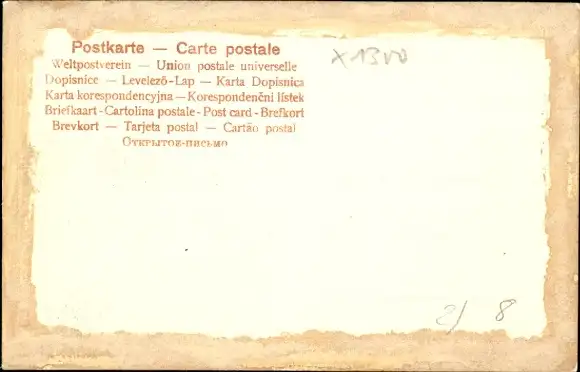 Postkarte — Carte postale
Weltpostverein — Union postale universelle
Dopisnice — Levelező-Lap — Karta Dopisnica
Karta korespondencyjna — Korespondenční lístek
Briefkaart - Cartolina postale - Post card - Brefkort
Brevkort — Tarjeta postal — Cartão postal
Открытое-письмо
2/ 8